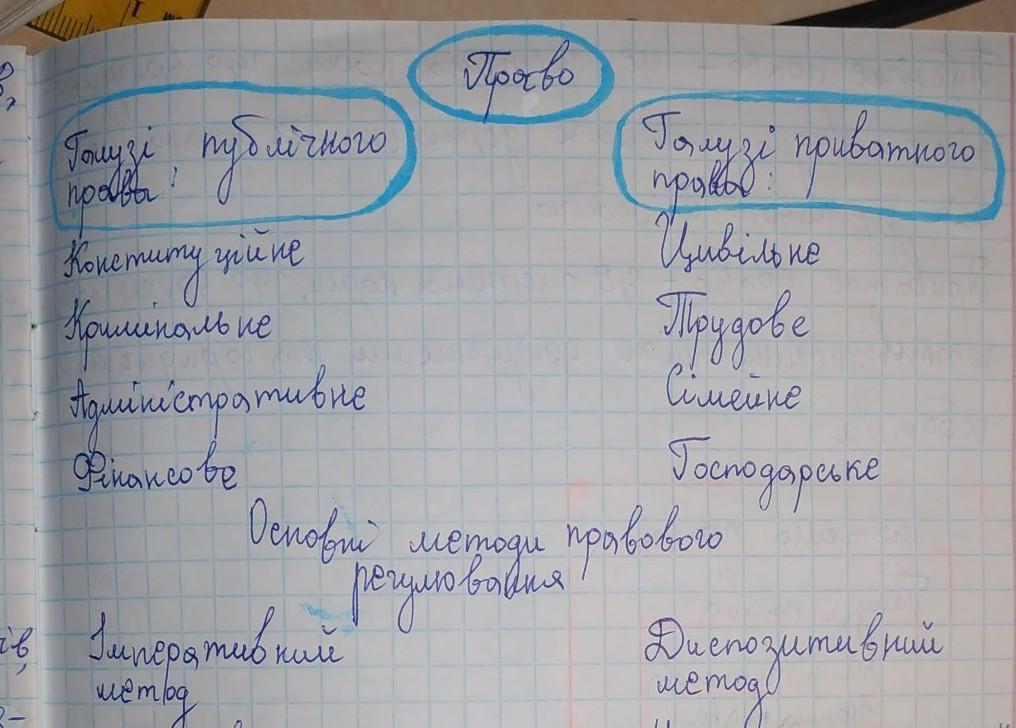 Право
Галузі публічного
права:
Конституційне
Кримінальне
Адміністративне
Фінансове
Галузі приватного
права:
Цивільне
Трудове
Сімейне
Господарське
Основні методи правового
регулювання
Імперативний
метод
Диспозитивний
метод